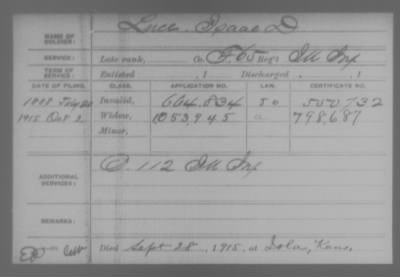 Luce Isaac D
NAME OF SOLDIER:
SERVICE: Late rank, Co. F, 65 Reg't Ill Inf
TERM OF SERVICE: Enlisted , 1 Discharged , 1
DATE OF FILING. CLASS. APPLICATION NO. LAW. CERTIFICATE NO.
Invalid, 664,834 50 550732
1915 Oct 2 Widow, 1053,945 798,687
Minor,
ADDITIONAL SERVICES: D. 112 Ill Inf
REMARKS:
Died Sept 28, 1915, at Iola, Kans.